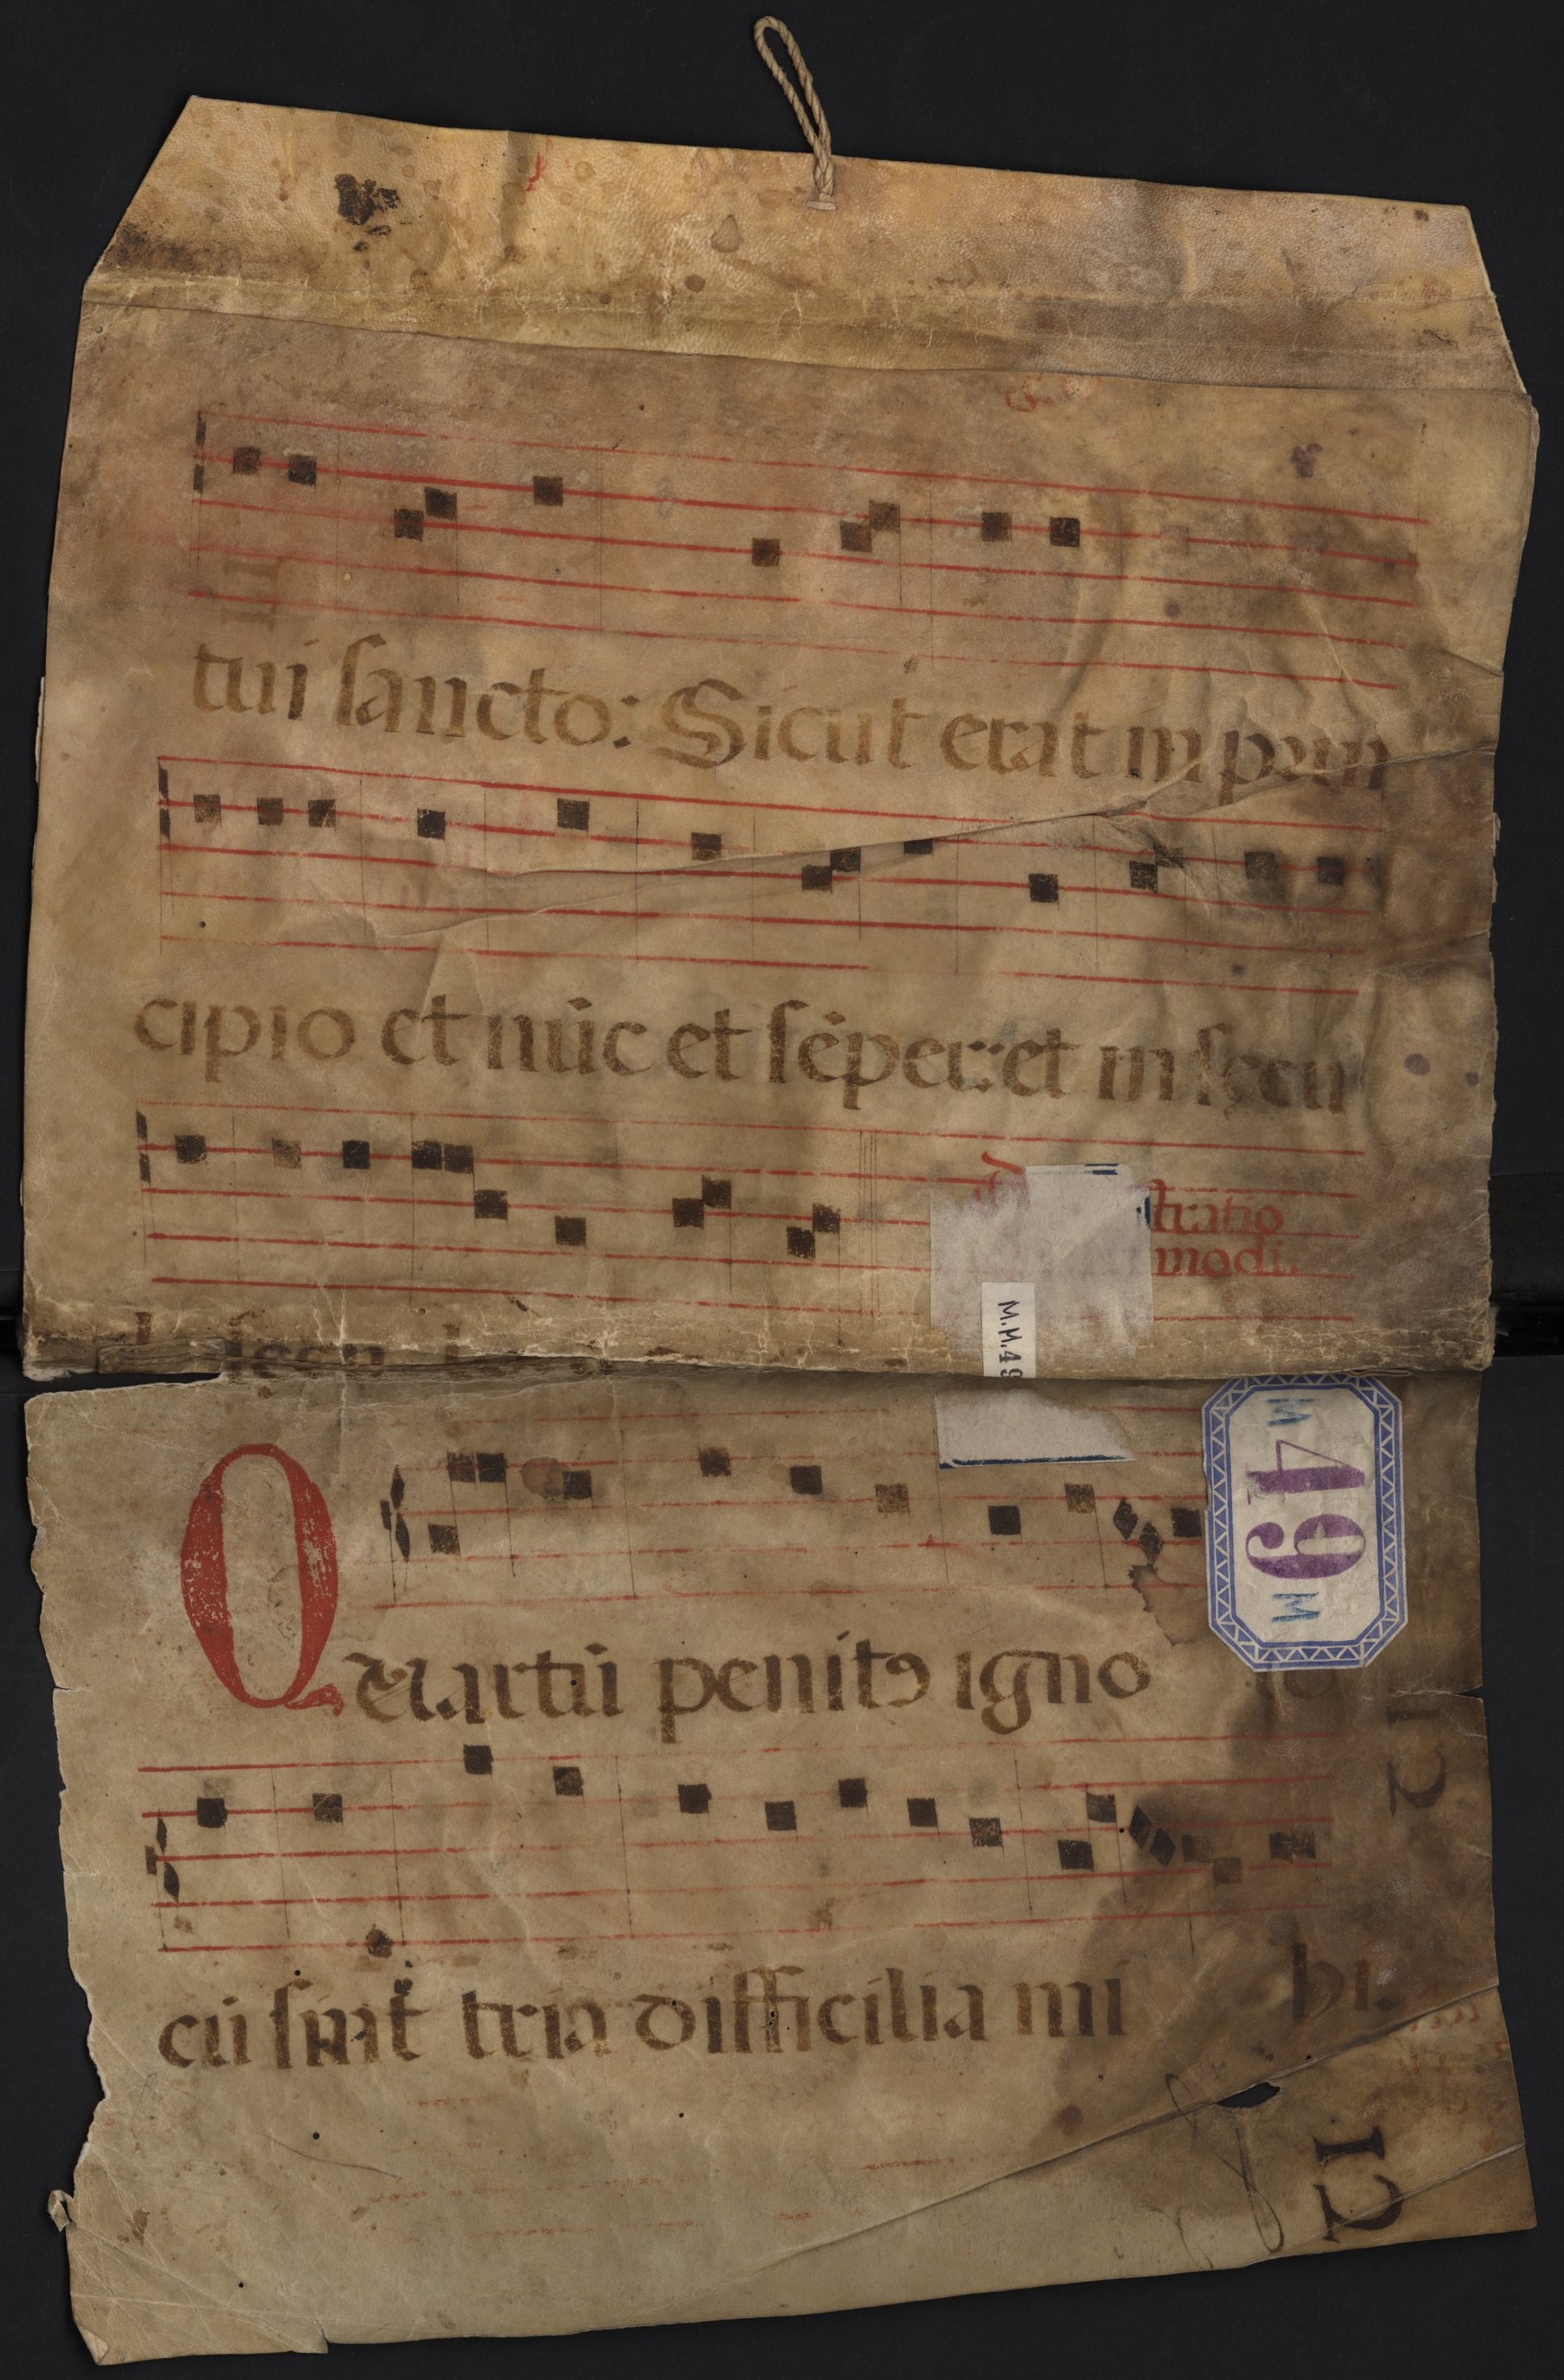 tui sancto: Sicut erat in prin
cipio et nūc et sēper: et in secu
tratio
modi.
M.M.49
M 49 M
Quartū penitꝯ igno
cū sint tria difficilia mi hi.
12
12